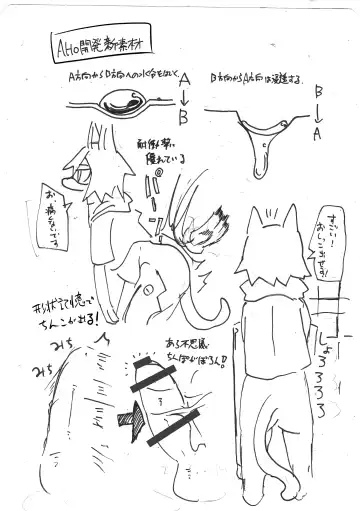 AHO開発新素材
A方向からB方向への水分をはじく
A
↓
B
B方向からA方向は浸透する
B
↓
A
耐衝撃に
優れている
お、痛そうです
すごい!
おしっこ出せす!
形状記憶で
ちんこが出る!
みち
みち
あら不思議
ちんぽがぽろん!!
しょ
ろ
ろ
ろ
ろ